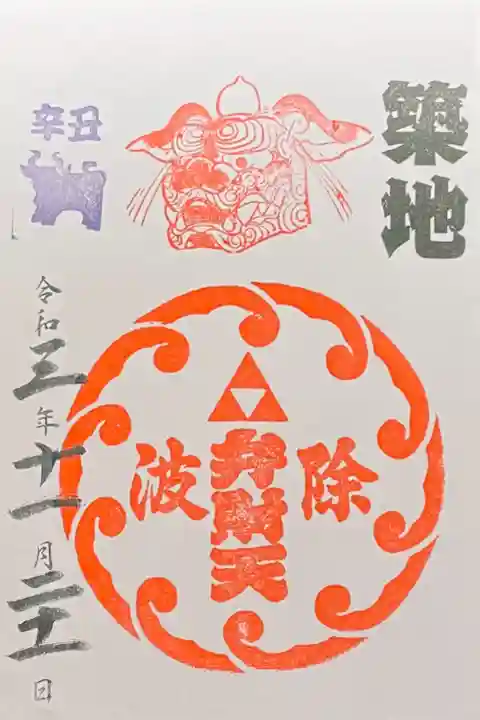 築地
辛丑
波除
弁財天
令和三年十一月二十一日